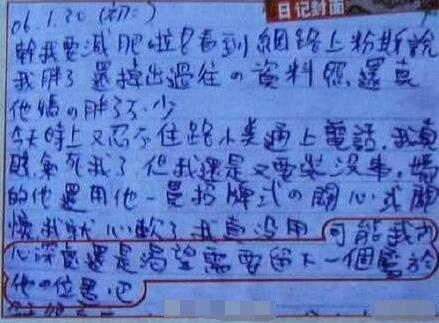 日记封面
06.1.30 (初二)
幹我要減肥啦!看到網路上粉絲說
我胖了還擠出過往の資料照還真
他媽の胖了不少
今天晚上又忍不住跟小美通上電話.我真
氣死我了但我還是又要裝沒事.媽
的他還用他一貫招牌式の關心或關
懷我就心軟了我真沒用可能我內
心深處還是渴望需要留下一個屬於
他の位置吧